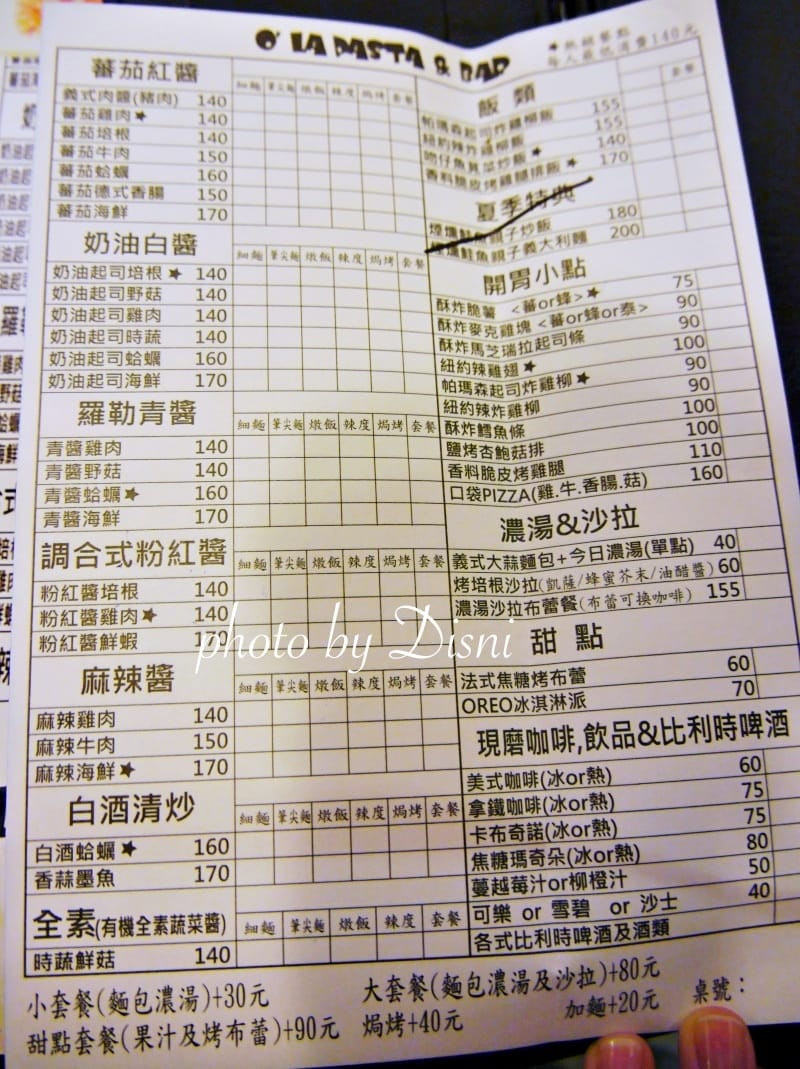 O' LA PASTA & BAR
★無限餐點
每人最低消費140元
蕃茄紅醬 細麵 筆尖麵 燉飯 辣度 焗烤 套餐
義式肉醬(豬肉) 140
蕃茄雞肉★ 140
蕃茄培根 140
蕃茄牛肉 150
蕃茄蛤蠣 160
蕃茄德式香腸 150
蕃茄海鮮 170
奶油白醬 細麵 筆尖麵 燉飯 辣度 焗烤 套餐
奶油起司培根★ 140
奶油起司野菇 140
奶油起司雞肉 140
奶油起司時蔬 140
奶油起司蛤蠣 160
奶油起司海鮮 170
羅勒青醬 細麵 筆尖麵 燉飯 辣度 焗烤 套餐
青醬雞肉 140
青醬野菇 140
青醬蛤蠣★ 160
青醬海鮮 170
調合式粉紅醬 細麵 筆尖麵 燉飯 辣度 焗烤 套餐
粉紅醬培根 140
粉紅醬雞肉★ 140
粉紅醬鮮蝦 170
麻辣醬 細麵 筆尖麵 燉飯 辣度 焗烤 套餐
麻辣雞肉 140
麻辣牛肉 150
麻辣海鮮★ 170
白酒清炒 細麵 筆尖麵 燉飯 辣度 焗烤 套餐
白酒蛤蠣★ 160
香蒜墨魚 170
全素(有機全素蔬菜醬) 細麵 筆尖麵 燉飯 辣度 套餐
時蔬鮮菇 140
飯類 套餐
帕瑪森起司炸雞柳飯 155
紐約辣炸雞柳飯 155
吻仔魚莧菜炒飯★ 140
香料脆皮烤雞腿排飯★ 170
夏季特典
煙燻鮭魚親子炒飯 180
煙燻鮭魚親子義大利麵 200
開胃小點
酥炸脆薯 <蕃or蜂>★ 75
酥炸麥克雞塊 <蕃or蜂or泰> 90
酥炸馬芝瑞拉起司條 90
紐約辣雞翅★ 100
帕瑪森起司炸雞柳★ 90
紐約辣炸雞柳 90
酥炸鱈魚條 100
鹽烤杏鮑菇排 100
香料脆皮烤雞腿 110
口袋PIZZA(雞.牛.香腸.菇) 160
濃湯&沙拉
義式大蒜麵包+今日濃湯(單點) 40
烤培根沙拉(凱薩/蜂蜜芥末/油醋醬) 60
濃湯沙拉布蕾餐(布蕾可換咖啡) 155
甜點
法式焦糖烤布蕾 60
OREO冰淇淋派 70
現磨咖啡,飲品&比利時啤酒
美式咖啡(冰or熱) 60
拿鐵咖啡(冰or熱) 75
卡布奇諾(冰or熱) 75
焦糖瑪奇朵(冰or熱) 80
蔓越莓汁or柳橙汁 50
可樂 or 雪碧 or 沙士 40
各式比利時啤酒及酒類
小套餐(麵包濃湯)+30元 大套餐(麵包濃湯及沙拉)+80元
甜點套餐(果汁及烤布蕾)+90元 焗烤+40元 加麵+20元 桌號：
photo by Disni